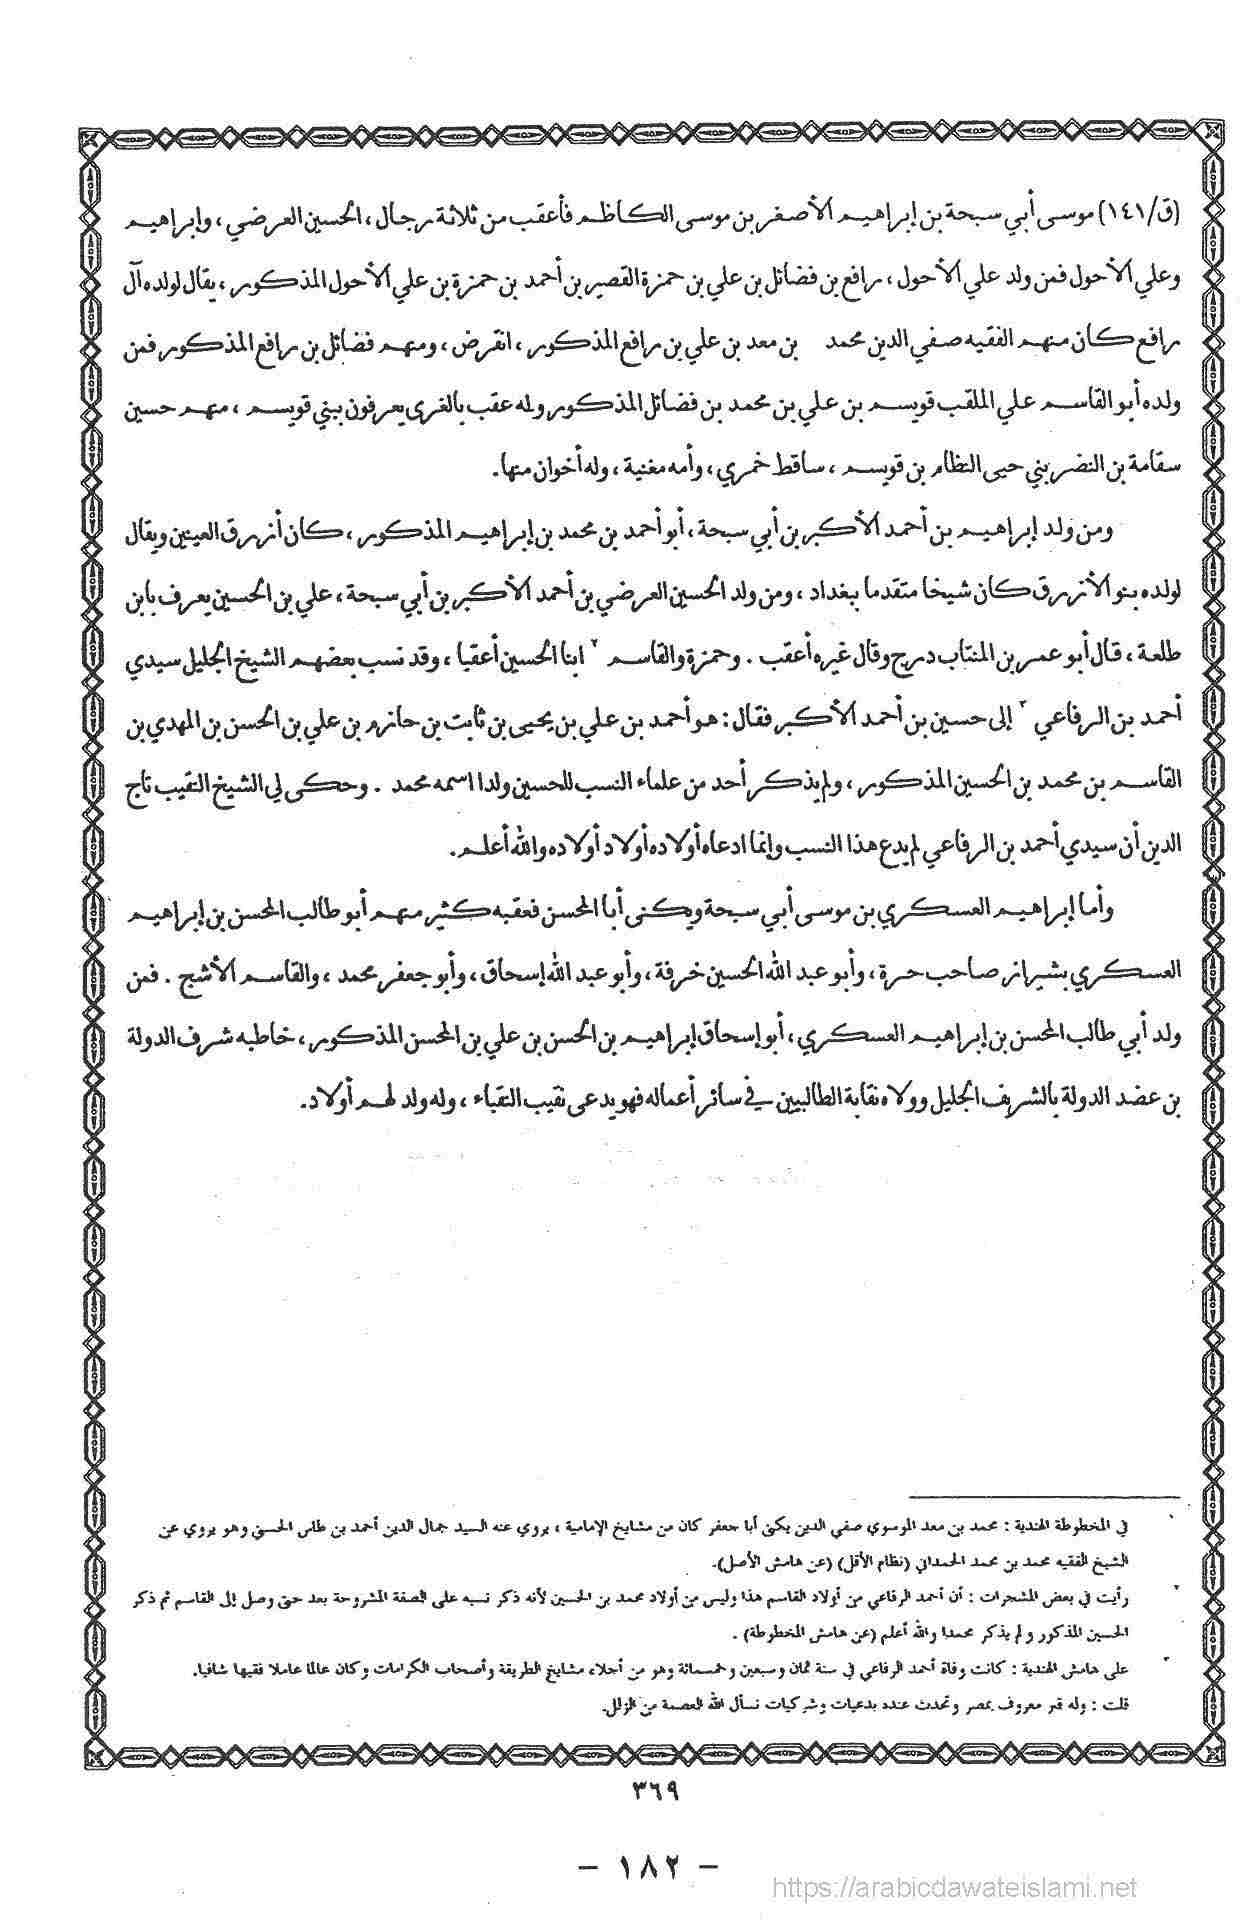 (ق/١٤١) موسى أبي سبحة بن إبراهيم الأصغر بن موسى الكاظم فأعقب من ثلاثة رجال، الحسين العرضي، وإبراهيم
وعلي الأحول فمن ولد علي الأحول، رافع بن فضائل بن علي بن حمزة القصير بن أحمد بن حمزة بن علي الأحول المذكور، يقال لولده آل
رافع كان منهم الفقيه صفي الدين محمد بن معد بن علي بن رافع المذكور، انقرض، ومنهم فضائل بن رافع المذكور فمن
ولده أبو القاسم علي الملقب قويسم بن علي بن محمد بن فضائل المذكور وله عقب بالغرى يعرفون ببني قويسم، منهم حسين
سقامة بن النضر بني حيى النظام بن قويسم، ساقط خمري، وأمه مغنية، وله أخوان منها.
ومن ولد إبراهيم بن أحمد الأكبر بن أبي سبحة، أبو أحمد بن محمد بن إبراهيم المذكور، كان أزرق العينين ويقال
لولده بنو الأزرق كان شيخا متقدما ببغداد، ومن ولد الحسين العرضي بن أحمد الأكبر بن أبي سبحة، علي بن الحسين يعرف بابن
طلعة، قال أبو عمر بن المنتاب درج وقال غيره أعقب. وحمزة والقاسم ٢ ابنا الحسين أعقبا، وقد نسب بعضهم الشيخ الجليل سيدي
أحمد بن الرفاعي ٣ إلى حسين بن أحمد الأكبر فقال: هو أحمد بن علي بن يحيى بن ثابت بن حازم بن علي بن الحسن بن المهدي بن
القاسم بن محمد بن الحسين المذكور، ولم يذكر أحد من علماء النسب للحسين ولدا اسمه محمد. وحكى لي الشيخ النقيب تاج
الدين أن سيدي أحمد بن الرفاعي لم يدع هذا النسب وإنما ادعاه أولاده أولاد أولاده والله أعلم.
وأما إبراهيم العسكري بن موسى أبي سبحة ويكنى أبا المحسن فعقبه كثير منهم أبو طالب المحسن بن إبراهيم
العسكري بشيراز صاحب حرة، وأبو عبد الله الحسين خرفة، وأبو عبد الله إسحاق، وأبو جعفر محمد، والقاسم الأشج. فمن
ولد أبي طالب المحسن بن إبراهيم العسكري، أبو إسحاق إبراهيم بن الحسن بن علي بن المحسن المذكور، خاطبه شرف الدولة
بن عضد الدولة بالشريف الجليل وولاه نقابة الطالبيين في سائر أعماله فهو يدعى نقيب النقباء، وله ولد لهم أولاد.
١ في المخطوطة الهندية: محمد بن معد الموسوي صفي الدين يكنى أبا جعفر كان من مشايخ الإمامية، يروي عنه السيد جمال الدين أحمد بن طاس الحسني وهو يروي عن
الشيخ الفقيه محمد بن محمد الحمداني (نظام الأقل) (عن هامش الأصل).
٢ رأيت في بعض المشجرات: أن أحمد الرفاعي من أولاد القاسم هذا وليس من أولاد محمد بن الحسين لأنه ذكر نسبه على الصفة المشروحة بعد حتى وصل إلى القاسم ثم ذكر
الحسين المذكور ولم يذكر محمدا والله أعلم (عن هامش المخطوطة).
٣ على هامش الهندية: كانت وفاة أحمد الرفاعي في سنة ثمان وسبعين وخمسمائة وهو من أجلاء مشايخ الطريقة وأصحاب الكرامات وكان عالما عاملا فقيها شافيا.
قلت: وله قبر معروف بمصر وتحدث عنده بدعيات وشركيات نسأل الله العصمة من الزلل.
٣٦٩
- ١٨٢ -
https://arabicdawateislami.net